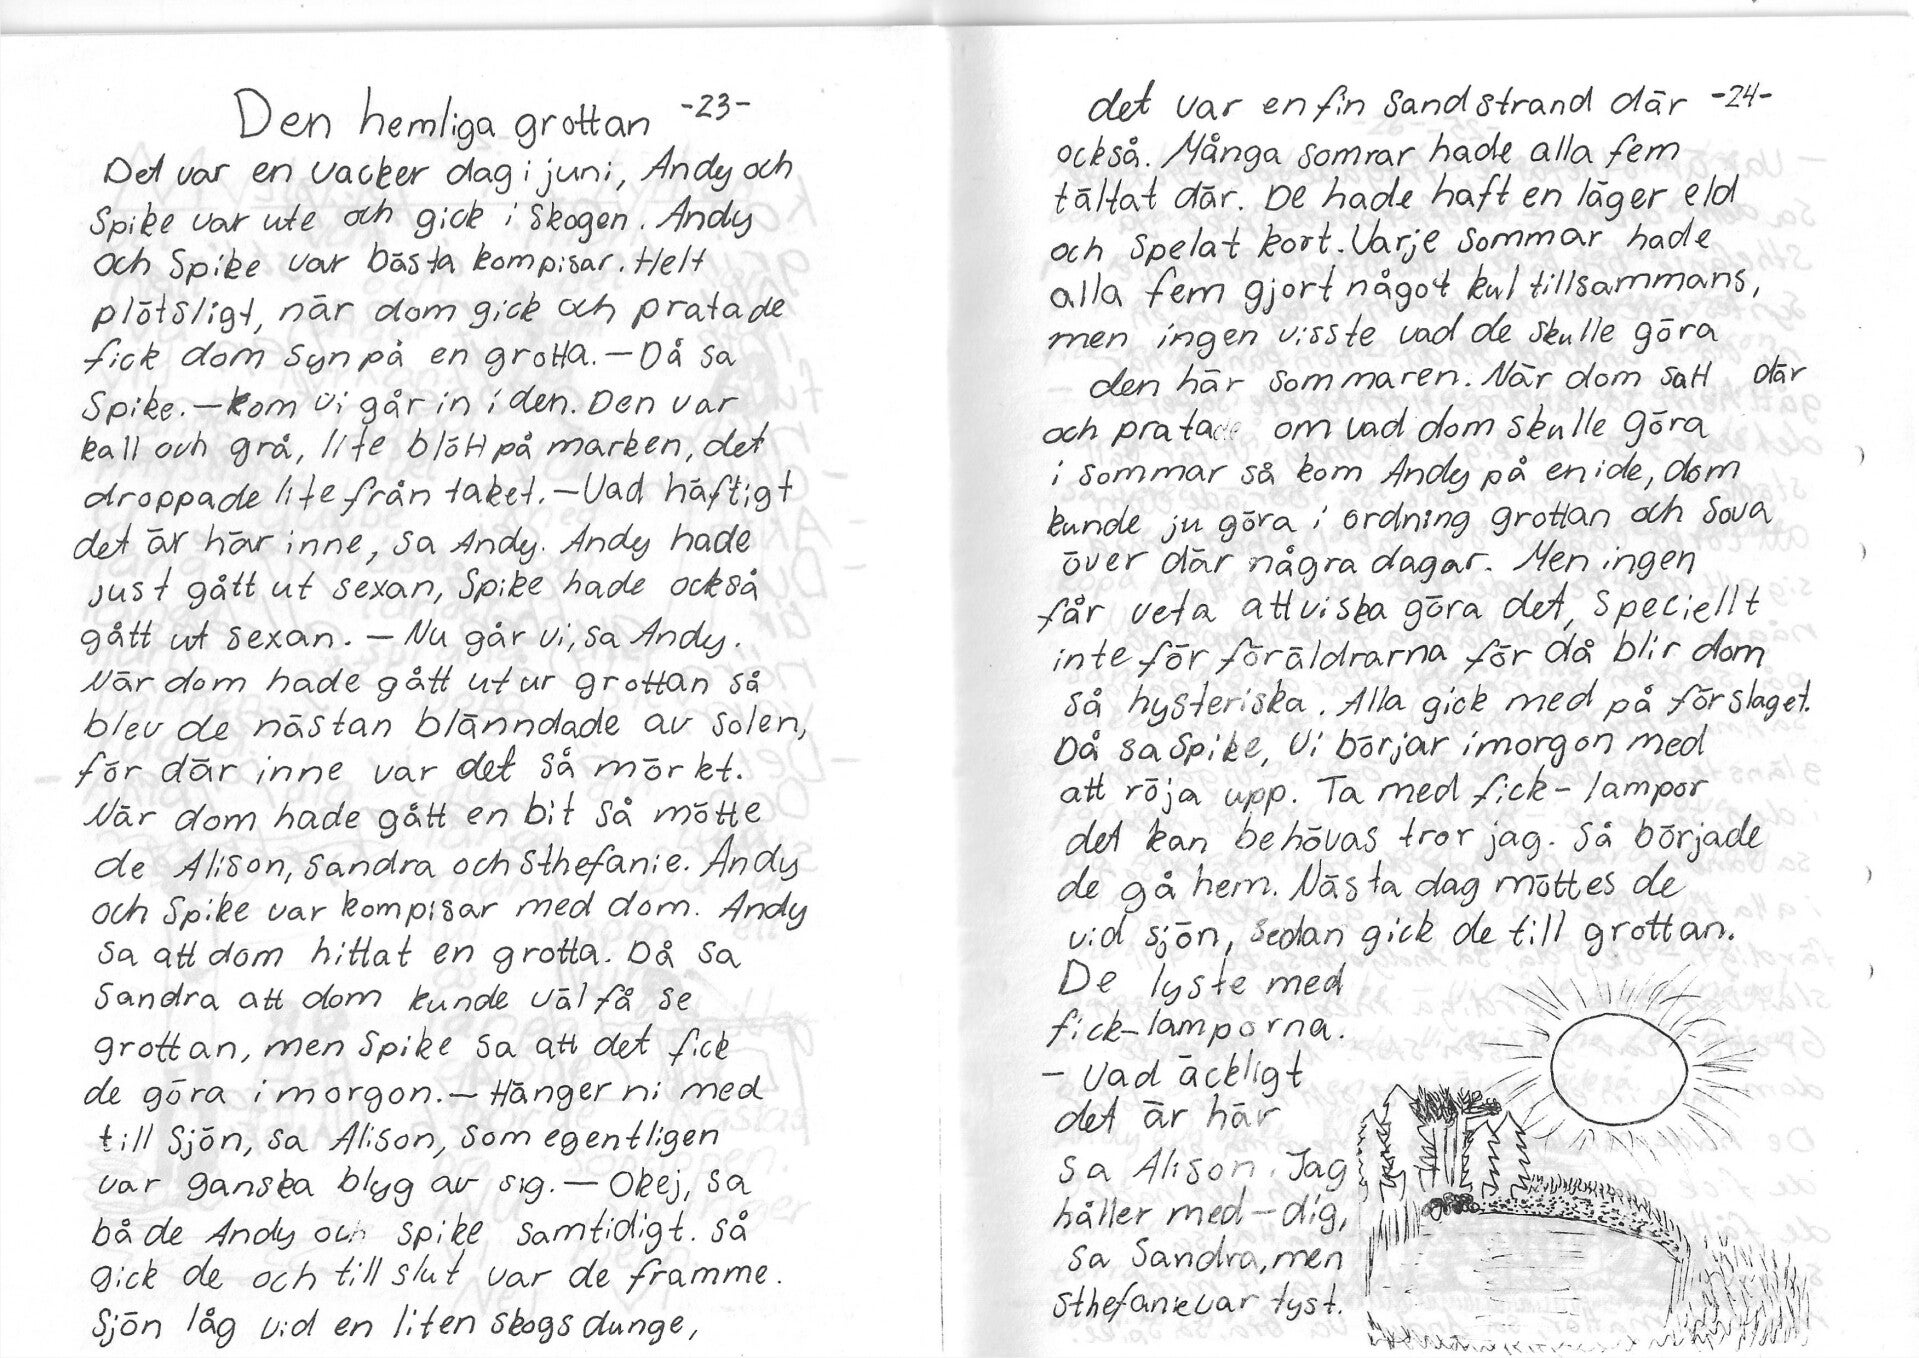 Den hemliga grottan -23-
Det var en vacker dag i juni, Andy och
Spike var ute och gick i skogen. Andy
och Spike var bästa kompisar. Helt
plötsligt, när dom gick och pratade
fick dom syn på en grotta. – Då sa
Spike. – kom vi går in i den. Den var
kall och grå, lite blött på marken, det
droppade lite från taket. – Vad häftigt
det är här inne, sa Andy. Andy hade
just gått ut sexan, Spike hade också
gått ut sexan. – Nu går vi, sa Andy.
När dom hade gått ut ur grottan så
blev de nästan blänndade av solen,
för där inne var det så mörkt.
När dom hade gått en bit så mötte
de Alison, Sandra och Sthefanie. Andy
och Spike var kompisar med dom. Andy
sa att dom hittat en grotta. Då sa
Sandra att dom kunde väl få se
grottan, men Spike sa att det fick
de göra i morgon. – Hänger ni med
till sjön, sa Alison, som egentligen
var ganska blyg av sig. – Okej, sa
både Andy och Spike samtidigt. Så
gick de och till slut var de framme.
Sjön låg vid en liten skogsdunge,
det var en fin sandstrand där -24-
också. Många somrar hade alla fem
tältat där. De hade haft en läger eld
och spelat kort. Varje sommar hade
alla fem gjort något kul tillsammans,
men ingen visste vad de skulle göra
den här sommaren. När dom satt där
och pratade om vad dom skulle göra
i sommar så kom Andy på en ide, dom
kunde ju göra i ordning grottan och sova
över där några dagar. Men ingen
får veta att vi ska göra det, speciellt
inte för föräldrarna för då blir dom
så hysteriska. Alla gick med på förslaget.
Då sa Spike, Vi börjar imorgon med
att röja upp. Ta med fick-lampor
det kan behövas tror jag. Så började
de gå hem. Nästa dag möttes de
vid sjön, sedan gick de till grottan.
De lyste med
fick-lamporna.
- Vad äckligt
det är här
sa Alison. Jag
håller med-dig,
sa Sandra, men
Sthefanie var tyst.